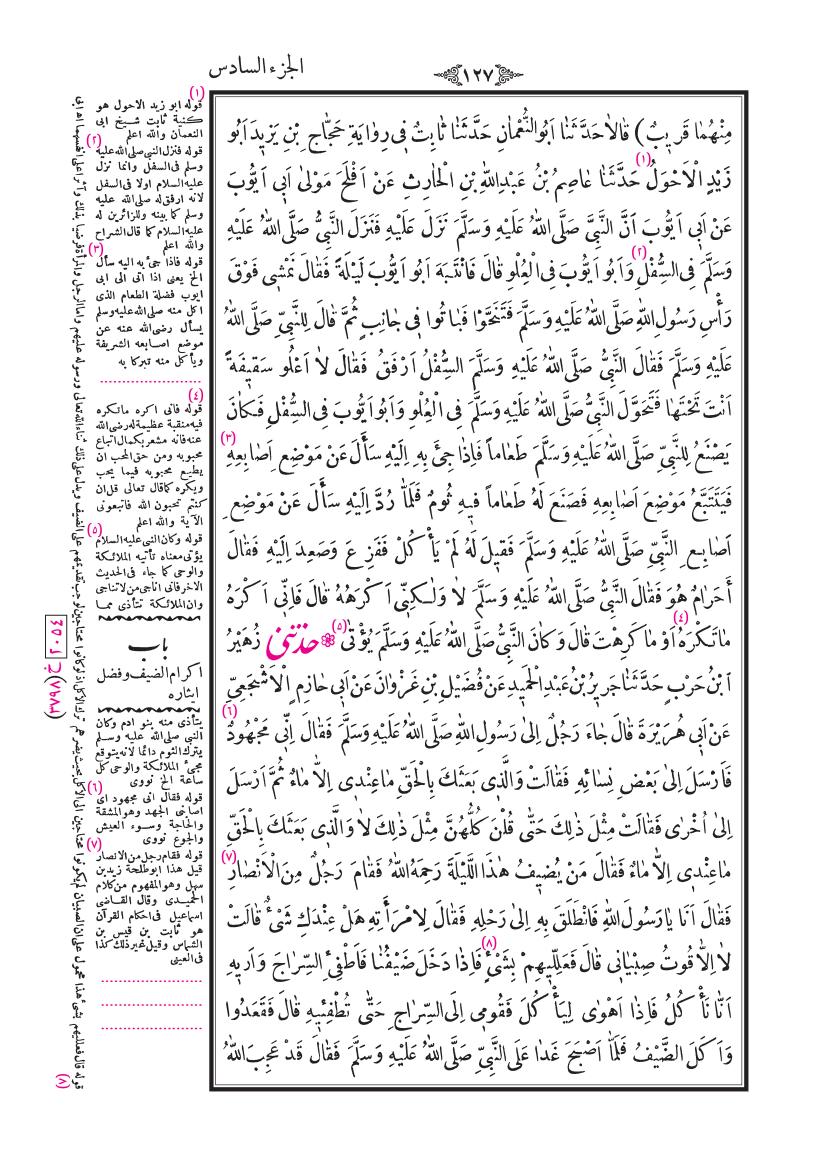 الجزء السادس
١٢٧
مِنْهُمَا قَرِيبٌ) قَالَا حَدَّثَنَا اَبُو النُّعْمَانِ حَدَّثَنَا ثَابِتٌ فِى رِوَايَةِ حَجَّاجِ بْنِ يَزِيدَ اَبُو
زَيْدٍ الْاَحْوَلُ (١) حَدَّثَنَا عَاصِمُ بْنُ عَبْدِاللّٰهِ بْنِ الْحَارِثِ عَنْ اَفْلَحَ مَوْلٰى اَبِى اَيُّوبَ
عَنْ اَبِى اَيُّوبَ اَنَّ النَّبِىَّ صَلَّى اللّٰهُ عَلَيْهِ وَسَلَّمَ نَزَلَ عَلَيْهِ فَنَزَلَ النَّبِىُّ صَلَّى اللّٰهُ عَلَيْهِ
وَسَلَّمَ فِى السُّفْلِ (٢) وَاَبُو اَيُّوبَ فِى الْعُلْوِ قَالَ فَانْتَبَهَ اَبُو اَيُّوبَ لَيْلَةً فَقَالَ نَمْشِى فَوْقَ
رَأْسِ رَسُولِ اللّٰهِ صَلَّى اللّٰهُ عَلَيْهِ وَسَلَّمَ فَتَنَحَّوْا فَبَاتُوا فِى جَانِبٍ ثُمَّ قَالَ لِلنَّبِىِّ صَلَّى اللّٰهُ
عَلَيْهِ وَسَلَّمَ فَقَالَ النَّبِىُّ صَلَّى اللّٰهُ عَلَيْهِ وَسَلَّمَ السُّفْلُ اَرْفَقُ فَقَالَ لَا اَعْلُو سَقِيفَةً
اَنْتَ تَحْتَهَا فَتَحَوَّلَ النَّبِىُّ صَلَّى اللّٰهُ عَلَيْهِ وَسَلَّمَ فِى الْعُلْوِ وَاَبُو اَيُّوبَ فِى السُّفْلِ فَكَانَ
يَصْنَعُ لِلنَّبِىِّ صَلَّى اللّٰهُ عَلَيْهِ وَسَلَّمَ طَعَاماً فَاِذَا جِىءَ بِهِ اِلَيْهِ سَأَلَ عَنْ مَوْضِعِ اَصَابِعِهِ (٣)
فَيَتَتَبَّعُ مَوْضِعَ اَصَابِعِهِ فَصَنَعَ لَهُ طَعَاماً فِيهِ ثُومٌ فَلَمَّا رُدَّ اِلَيْهِ سَأَلَ عَنْ مَوْضِعِ
اَصَابِعِ النَّبِىِّ صَلَّى اللّٰهُ عَلَيْهِ وَسَلَّمَ فَقِيلَ لَهُ لَمْ يَأْكُلْ فَفَزِعَ وَصَعِدَ اِلَيْهِ فَقَالَ
أَحَرَامٌ هُوَ فَقَالَ النَّبِىُّ صَلَّى اللّٰهُ عَلَيْهِ وَسَلَّمَ لَا وَلٰكِنِّى اَكْرَهُهُ قَالَ فَاِنِّى اَكْرَهُ
مَا تَكْرَهُ (٤) اَوْ مَا كَرِهْتَ قَالَ وَكَانَ النَّبِىُّ صَلَّى اللّٰهُ عَلَيْهِ وَسَلَّمَ يُؤْتٰى (٥) حَدَّثَنِى زُهَيْرُ
ابْنُ حَرْبٍ حَدَّثَنَا جَرِيرُ بْنُ عَبْدِ الْحَمِيدِ عَنْ فُضَيْلِ بْنِ غَزْوَانَ عَنْ اَبِى حَازِمٍ الْاَشْجَعِىِّ
عَنْ اَبِى هُرَيْرَةَ قَالَ جَاءَ رَجُلٌ اِلٰى رَسُولِ اللّٰهِ صَلَّى اللّٰهُ عَلَيْهِ وَسَلَّمَ فَقَالَ اِنِّى مَجْهُودٌ (٦)
فَاَرْسَلَ اِلٰى بَعْضِ نِسَائِهِ فَقَالَتْ وَالَّذِى بَعَثَكَ بِالْحَقِّ مَاعِنْدِى اِلَّا مَاءٌ ثُمَّ اَرْسَلَ
اِلٰى اُخْرٰى فَقَالَتْ مِثْلَ ذٰلِكَ حَتّٰى قُلْنَ كُلُّهُنَّ مِثْلَ ذٰلِكَ لَا وَالَّذِى بَعَثَكَ بِالْحَقِّ
مَاعِنْدِى اِلَّا مَاءٌ فَقَالَ مَنْ يُضِيفُ هٰذَا اللَّيْلَةَ رَحِمَهُ اللّٰهُ فَقَامَ رَجُلٌ مِنَ الْاَنْصَارِ (٧)
فَقَالَ اَنَا يَارَسُولَ اللّٰهِ فَانْطَلَقَ بِهِ اِلٰى رَحْلِهِ فَقَالَ لِامْرَأَتِهِ هَلْ عِنْدَكِ شَىْءٌ قَالَتْ
لَا اِلَّا قُوتُ صِبْيَانِى قَالَ فَعَلِّلِيهِمْ بِشَىْءٍ (٨) فَاِذَا دَخَلَ ضَيْفُنَا فَاَطْفِئِ السِّرَاجَ وَاَرِيهِ
اَنَّا نَأْكُلُ فَاِذَا اَهْوٰى لِيَأْكُلَ فَقُومِى اِلَى السِّرَاجِ حَتّٰى تُطْفِئِيهِ قَالَ فَقَعَدُوا
وَاَكَلَ الضَّيْفُ فَلَمَّا اَصْبَحَ غَدَا عَلَى النَّبِىِّ صَلَّى اللّٰهُ عَلَيْهِ وَسَلَّمَ فَقَالَ قَدْ عَجِبَ اللّٰهُ
(١)
قوله ابو زيد الاحول هو
كنية ثابت شيخ ابى
النعمان والله اعلم
(٢)
قوله فنزل النبى صلى الله عليه
وسلم فى السفل وانما نزل
عليه السلام اولا فى السفل
لانه ارفق له صلى الله عليه
وسلم كما بينه وللزائرين له
عليه السلام كما قال الشراح
والله اعلم
(٣)
قوله فاذا جىء به اليه سأل
الخ يعنى اذا اتى الى ابى
ايوب فضلة الطعام الذى
اكل منه صلى الله عليه وسلم
يسأل رضى الله عنه عن
موضع اصابعه الشريفة
ويأكل منه تبركا به
(٤)
قوله فانى اكره ماتكره
فيه منقبة عظيمة له رضى الله
عنه فانه مشعر بكمال اتباع
محبوبه ومن حق المحب ان
يطيع محبوبه فيما يحب
ويكره كما قال تعالى قل ان
كنتم تحبون الله فاتبعونى
الآية والله اعلم
(٥)
قوله وكان النبى عليه السلام
يؤتى معناه تأتيه الملائكة
والوحى كما جاء فى الحديث
الآخر فانى اناجى من لاتناجى
وان الملائكة تتأذى مما
باب
اكرام الضيف وفضل
ايثاره
يتأذى منه بنو ادم وكان
النبى صلى الله عليه وسلم
يترك الثوم دائما لانه يتوقع
مجىء الملائكة والوحى كل
ساعة الخ نووى
(٦)
قوله فقال انى مجهود اى
اصابنى الجهد وهو المشقة
والحاجة وسوء العيش
والجوع نووى
(٧)
قوله فقام رجل من الانصار
قيل هذا ابوطلحة زيد بن
سهل وهو المفهوم من كلام
الحميدى وقال القاضى
اسماعيل فى احكام القرآن
هو ثابت بن قيس بن
الشماس وقيل غير ذلك كذا
فى العينى
(٨)
قوله قال فعلليهم بشىء هذا محمول على ان الصبيان لم يكونوا محتاجين الى الاكل بحيث يضرهم ترك الاكل اذ لو كانوا محتاجين لوجب تقديمهم على الضيف ويدل على ذلك ثناء الله تعالى ورسوله عليهم واما الرجل والمرأة فرضيا بذلك وآثرا على انفسهما اه ابى